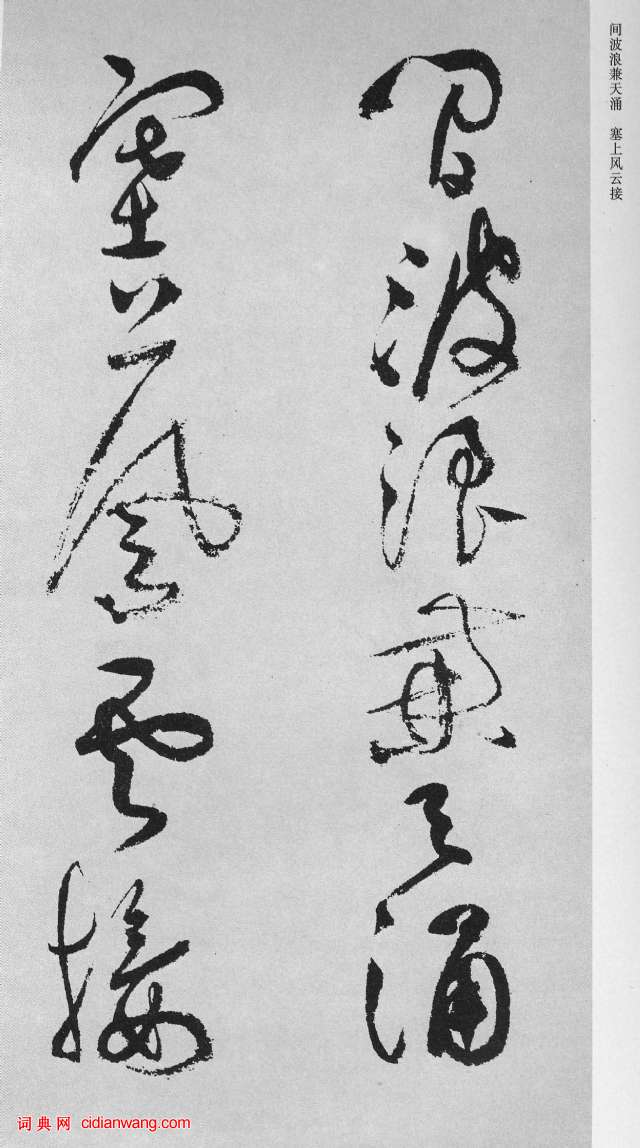 间波浪兼天涌 塞上风云接
间波浪兼天涌
塞上风云接
词典网 cidianwang.com